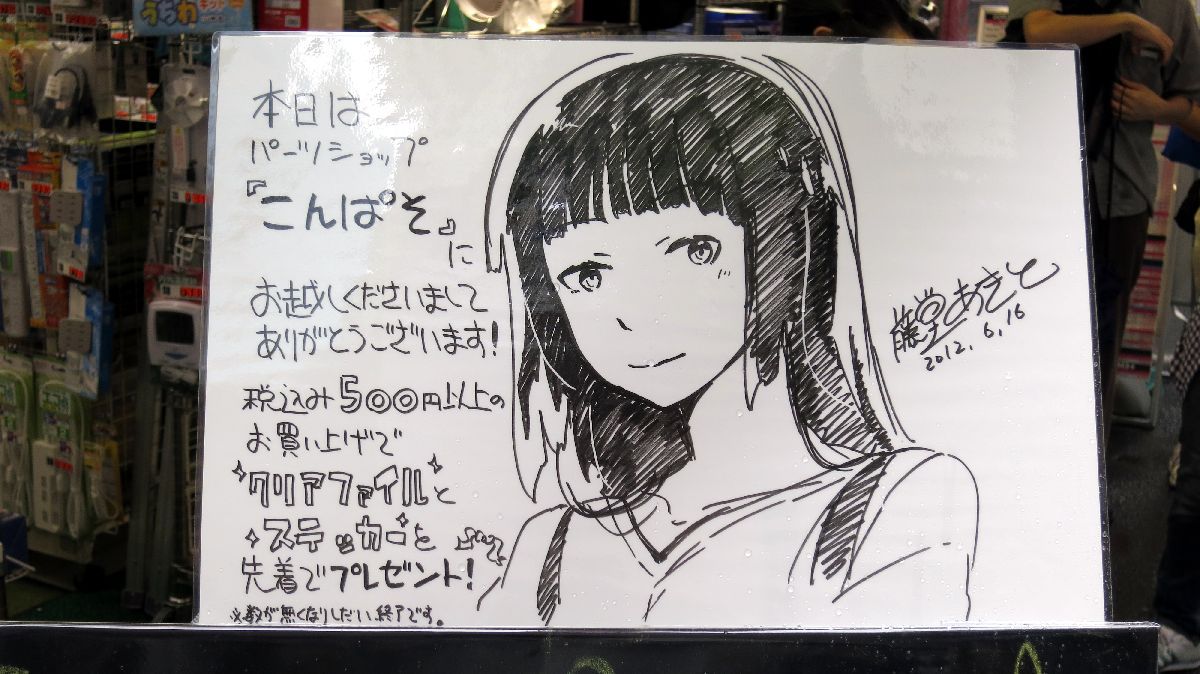 うちわ
本日は
パーツショップ
『こんぱそ』に
お越しくださいまして
ありがとうございます!
税込み500円以上の
お買い上げで
クリアファイルと
ステッカーを
先着でプレゼント!
※数が無くなりしだい終了です。
藤堂あきと
2012.6.16